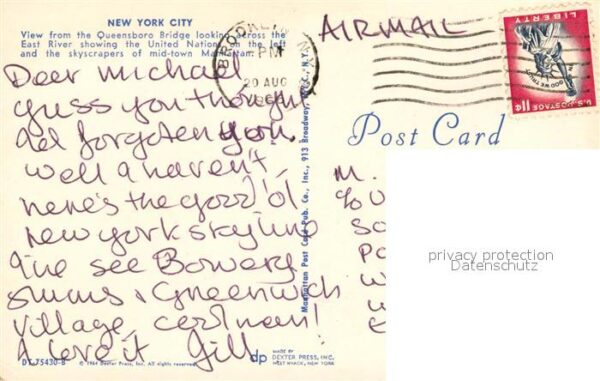 NEW YORK CITY
View from the Queensboro Bridge looking across the
East River showing the United Nations on the left
and the skyscrapers of mid-town Manhattan.
Dear Michael
guss you thought
ad forgotten you.
well a haven't,
here's the good 'ol
new york skyline
ive see Bowery
slums & Greenwich
village, cool man!
a love it Jill
DT-75430-B © 1964 Dexter Press, Inc. All rights reserved.
dp
MADE BY
DEXTER PRESS, INC.
WEST NYACK, NEW YORK
Manhattan Post Card Pub. Co., Inc., 913 Broadway, N.Y.C., N.Y.
BROOKLYN, N.Y.
PM
20 AUG
AIRMAIL
LIBERTY
IN GOD WE TRUST
U.S. POSTAGE 11¢
Post Card
M.
c/o
privacy protection
Datenschutz